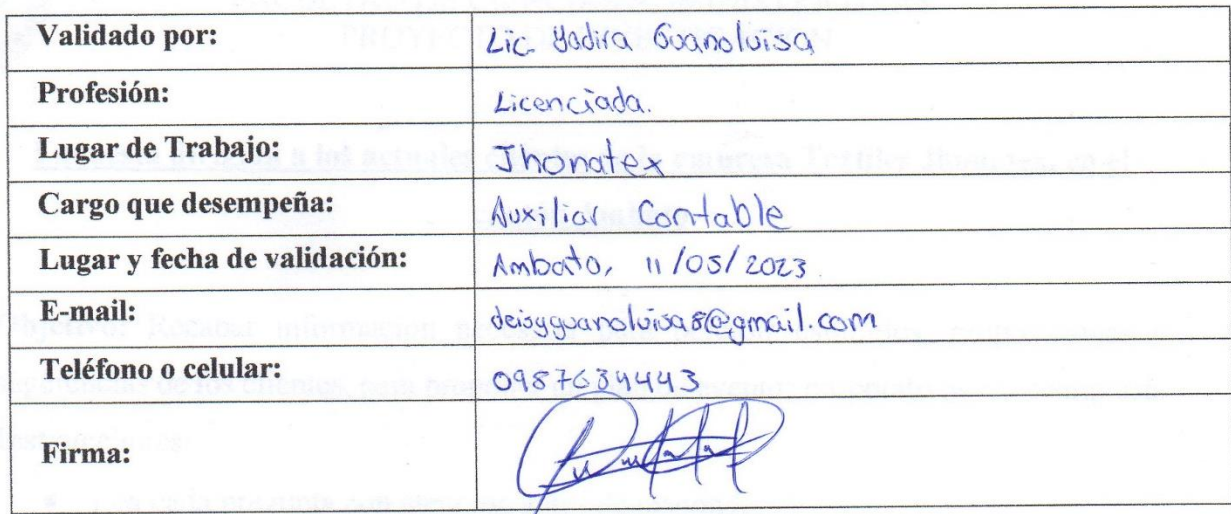 Validado por: Lic. Yadira Guanoluisa
Profesión: Licenciada.
Lugar de Trabajo: Jhonatex
Cargo que desempeña: Auxiliar Contable
Lugar y fecha de validación: Ambato, 11/05/2023
E-mail: deisyguanoluisa8@gmail.com
Teléfono o celular: 0987634443
Firma: